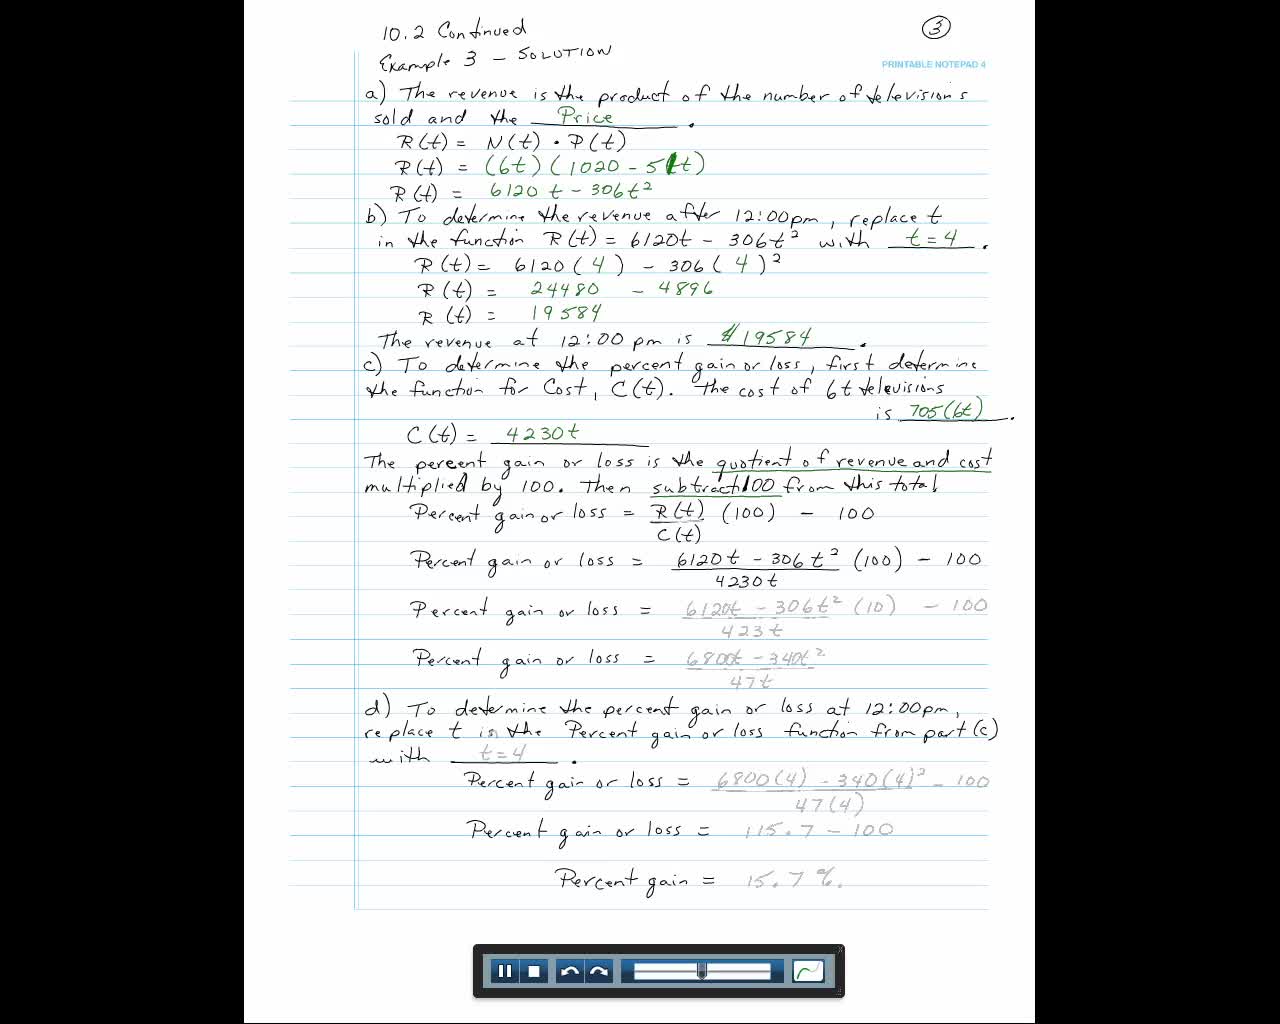 10.2 Continued
3
Example 3 - SOLUTION
PRINTABLE NOTEPAD 4
a) The revenue is the product of the number of televisions
sold and the Price.
R(t) = N(t) · P(t)
R(t) = (6t)(1020 - 51t)
R(t) = 6120t - 306t²
b) To determine the revenue after 12:00pm, replace t
in the function R(t) = 6120t - 306t² with t = 4.
R(t) = 6120(4) - 306(4)²
R(t) = 24480 - 4896
R(t) = 19584
The revenue at 12:00 pm is $19584.
c) To determine the percent gain or loss, first determine
the function for Cost, C(t). The cost of 6t televisions
is 705(6t).
C(t) = 4230t
The percent gain or loss is the quotient of revenue and cost
multiplied by 100. Then subtract 100 from this total.
Percent gain or loss = R(t)/C(t) (100) - 100
Percent gain or loss = 6120t - 306t²/4230t (100) - 100
Percent gain or loss = 6120t - 306t²/423t (10) - 100
Percent gain or loss = 6800t - 340t²/47t
d) To determine the percent gain or loss at 12:00pm,
replace t in the Percent gain or loss function from part (c)
with t = 4.
Percent gain or loss = 6800(4) - 340(4)²/47(4) - 100
Percent gain or loss = 115.7 - 100
Percent gain = 15.7%.